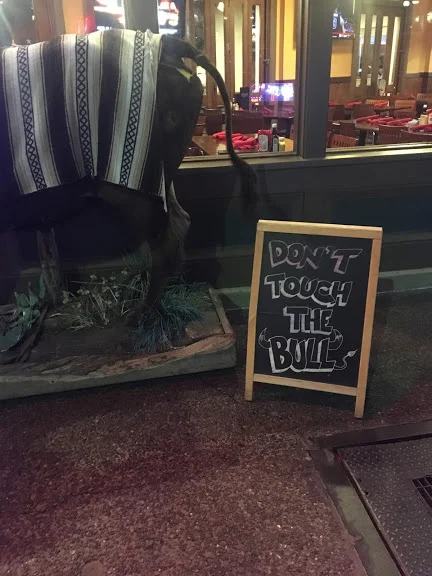 DON'T
TOUCH
THE
BULL